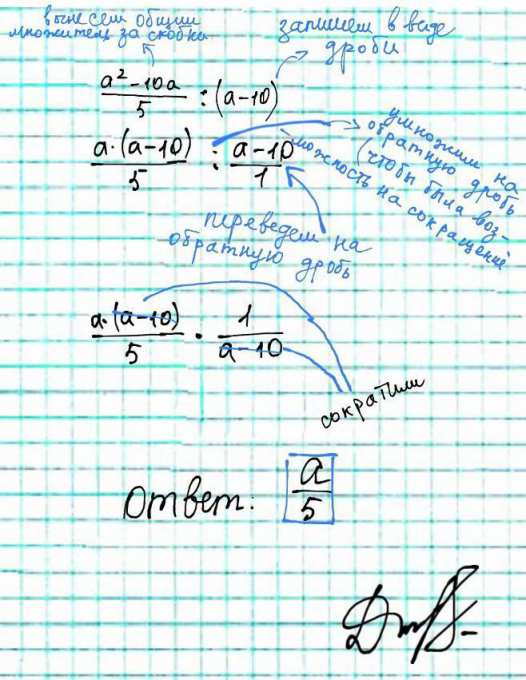 вынесем общий
множитель за скобки
запишем в виде
дроби
a² - 10a / 5 : (a - 10)
a · (a - 10) / 5 : a - 10 / 1
умножим на
обратную дробь
(чтобы была воз-
можность на сокращение
переведем на
обратную дробь
a · (a - 10) / 5 · 1 / a - 10
сократили
Ответ: a / 5